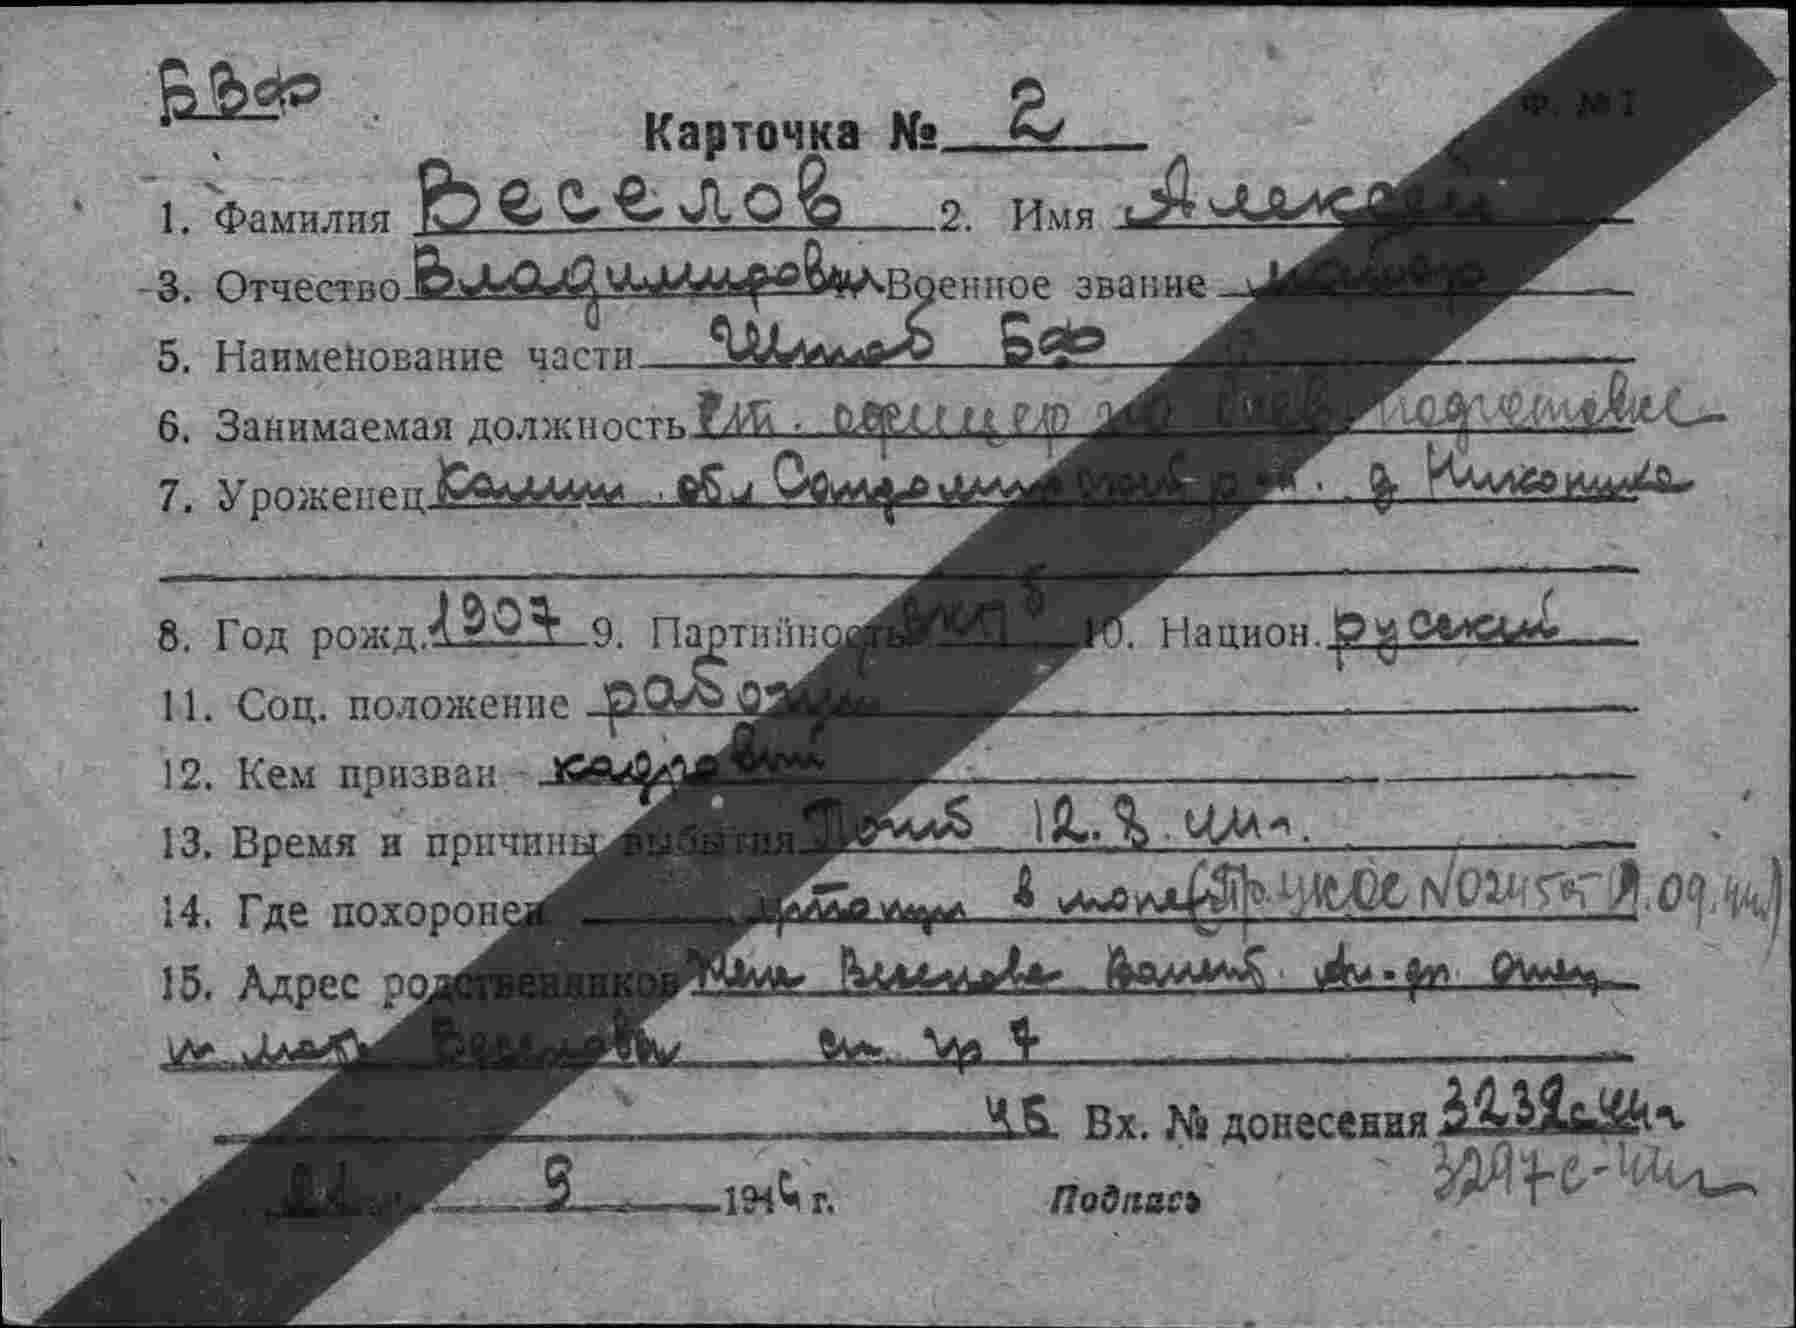 БВФ
Ф. № 1
Карточка № 2
1. Фамилия Веселов 2. Имя Алексей
3. Отчество Владимирович Военное звание майор
5. Наименование части Штаб БФ
6. Занимаемая должность Ст. офицер по боев. подготовке
7. Уроженец Калин. обл Сандо р-н. д
8. Год рожд. 1907 9. Партийность ВКПб 10. Национ. русский
11. Соц. положение рабочий
12. Кем призван кадровый
13. Время и причины выбытия Погиб 12.8.44г.
14. Где похоронен утонул в море (Пр. УК ОС №0245 от .09.44)
15. Адрес родственников Жена Веселова Валент. Ал-др. отец
и мать Веселовы ст гр 7
ЧБ Вх. № донесения 3232с 44г
3297с-44г
21 9 1944 г. Подпись